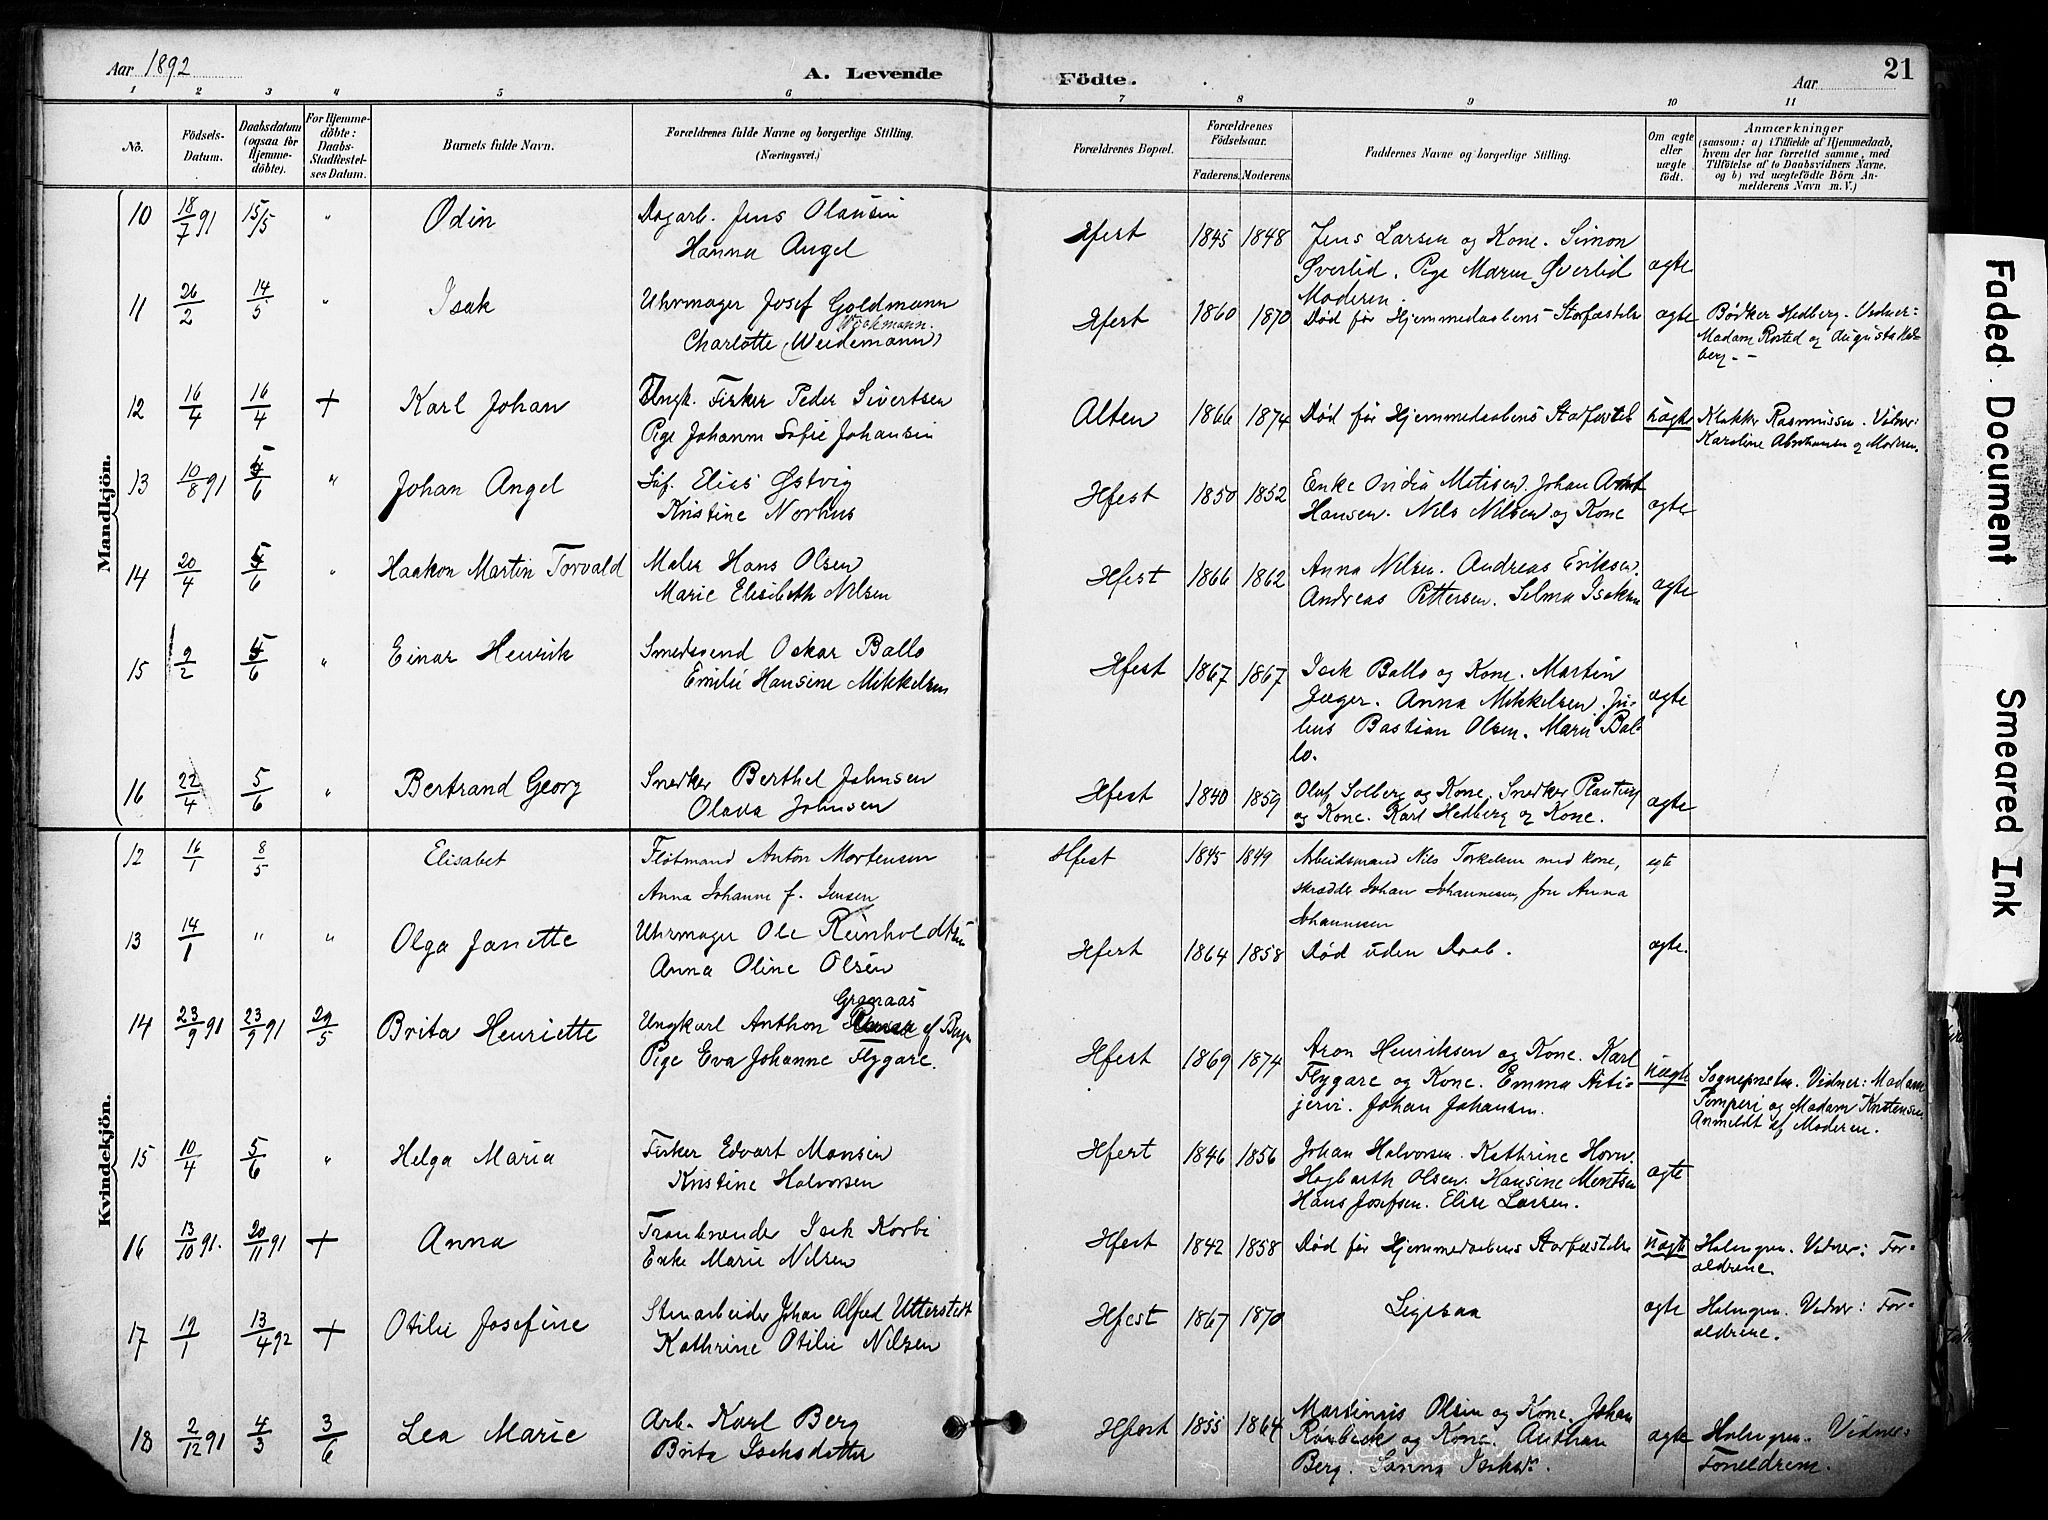 Aar 1892
A. Levende
Födte.
Aar
21
1 2 3 4 5 6 7 8 9 10 11
No.
Födsels-
Datum.
Daabsdatum
(ogsaa for
Hjemme-
döbte).
For Hjemme-
döbte:
Daabs-
Stadfæstel-
ses Datum.
Barnets fulde Navn.
Forældrenes fulde Navne og borgerlige Stilling.
(Næringsvei.)
Forældrenes Bopæl.
Forældrenes
Födselsaar.
Faderens. Moderens.
Faddernes Navne og borgerlige Stilling.
Om ægte
eller
uægte
födt.
Anmærkninger
(saasom: a) i Tilfælde af Hjemmedaab,
hvem der har forrettet samme, med
Tilföielse af to Daabsvidners Navne.
og b) ved uægtefödte Börn An-
melderens Navn m. V.)
Mandkjön.
10 18/7 91 15/5 " Odin Dagarb. Jens Olausen
Hanna Angel
Hfest 1845 1848 Jens Larsen og Kone. Simon
Sverlid. Pige Maren Sverlid
Moderen.
ægte
11 26/2 14/5 " Isak Uhrmager Josef Goldmann
Charlotte (Weidemann)
Hfest 1860 1870 Død før Hjemmedaabens Starfæstelse ægte Bødker Hedberg. Vidner:
Madam Rosted og Augusta Hed-
berg. -
12 16/4 16/4 + Karl Johan Ungk. Fisker Peder Sivertsen
Pige Johanne Sofie Johansen
Alten 1866 1874 Død før Hjemmedaabens Starfæstelse uægte Klokker Rasmussen. Vidner:
Karoline Abrahamsen og Moderen.
13 10/8 91 5/6 " Johan Angel Elias Østvig
Kristine Norhus
Hfest 1850 1852 Enke Ovidia Matisen. Johan Arnt
Hansen. Nils Nilsen og Kone
ægte
14 20/4 5/6 " Haakon Martin Torvald Maler Hans Olsen
Marie Elisibeth Nilsen
Hfest 1866 1862 Anna Nilsen. Andreas Eriksen.
Andreas Pettersen. Selma Isaksen
ægte
15 2/2 5/6 " Einar Henrik Smedsvend Oskar Ballo
Emilie Hansine Mikkelsen
Hfest 1867 1867 Isak Ballo og Kone. Martin
Jæger. Anna Mikkelsen. Ju-
lius Bastian Olsen. Marie Bal-
lo.
ægte
16 22/4 5/6 " Bertrand Georg Snedker Berthel Johnsen
Olava Johnsen
Hfest 1840 1859 Oluf Solberg og Kone. Snedker Planting
og Kone. Karl Hedberg og Kone.
ægte
Kvindekjön.
12 16/1 8/5 Elisabet Fløtmand Anton Mortensen
Anna Johanne f. Jensen
Hfest 1845 1849 Arbeidsmand Nils Torkelsen med kone,
skrædder Johan Johannesen, fru Anna
Johannesen
egte
13 14/1 " " Olga Janette Uhrmager Ole Reinholdtsen
Anna Oline Olsen
Hfest 1864 1858 Død uden Daab. ægte.
14 23/9 91 23/9 91 29/5 Brita Henriette Ungkarl Anthon Granaas af Bergen
Pige Eva Johanne Flygare.
Hfest 1869 1874 Aron Henriksen og Kone. Karl
Flygare og Kone. Emma Aiti-
jervi. Johan Johansen.
uægte Sognepresten. Vidner: Madam
Pemperi og Madam Kristensen.
Anmeldt af Moderen.
15 10/4 5/6 " Helga Maria Fisker Edvart Monsen
Kristine Halvorsen
Hfest 1846 1856 Johan Halvorsen. Kathrine Horn.
Hagbarth Olsen. Hansine Mentsen
Hans Josefsen. Elise Larsen.
ægte
16 13/10 91. 20/11 91 + Anna Tranbrender Isak Korbi
Enke Marie Nilsen
Hfest 1842 1858 Død før Hjemmedaabens Starfæstelse uægte Holmgren. Vidner: For-
ældrene.
17 19/1 13/4 92 + Otilie Josefine Stenarbeider Johan Alfred Utterstedt
Kathrine Otilie Nilsen
Hfest 1867 1870 Ligesaa ægte Holmgren. Vidner: For-
ældrene.
18 2/12 91 4/3 3/6 Lea Marie Arb. Karl Berg
Brita Isaksdatter
Hfest 1855 1864 Martinus Olsen og Kone. Johan
Rønbeck og Kone. Anthon
Berg. Sanna Isaksd.
ægte Holmgren. Vidner:
Foreldrene.
Faded Document
Smeared Ink